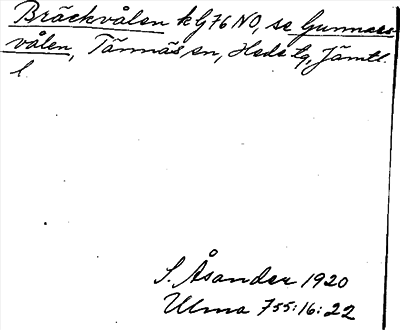 Bräckvålen k G76 NO, se Gunnars-
vålen, Tännäs sn, Heds tg, Jämtl.
l
S. Åsander 1920
Ulma 755:16:22